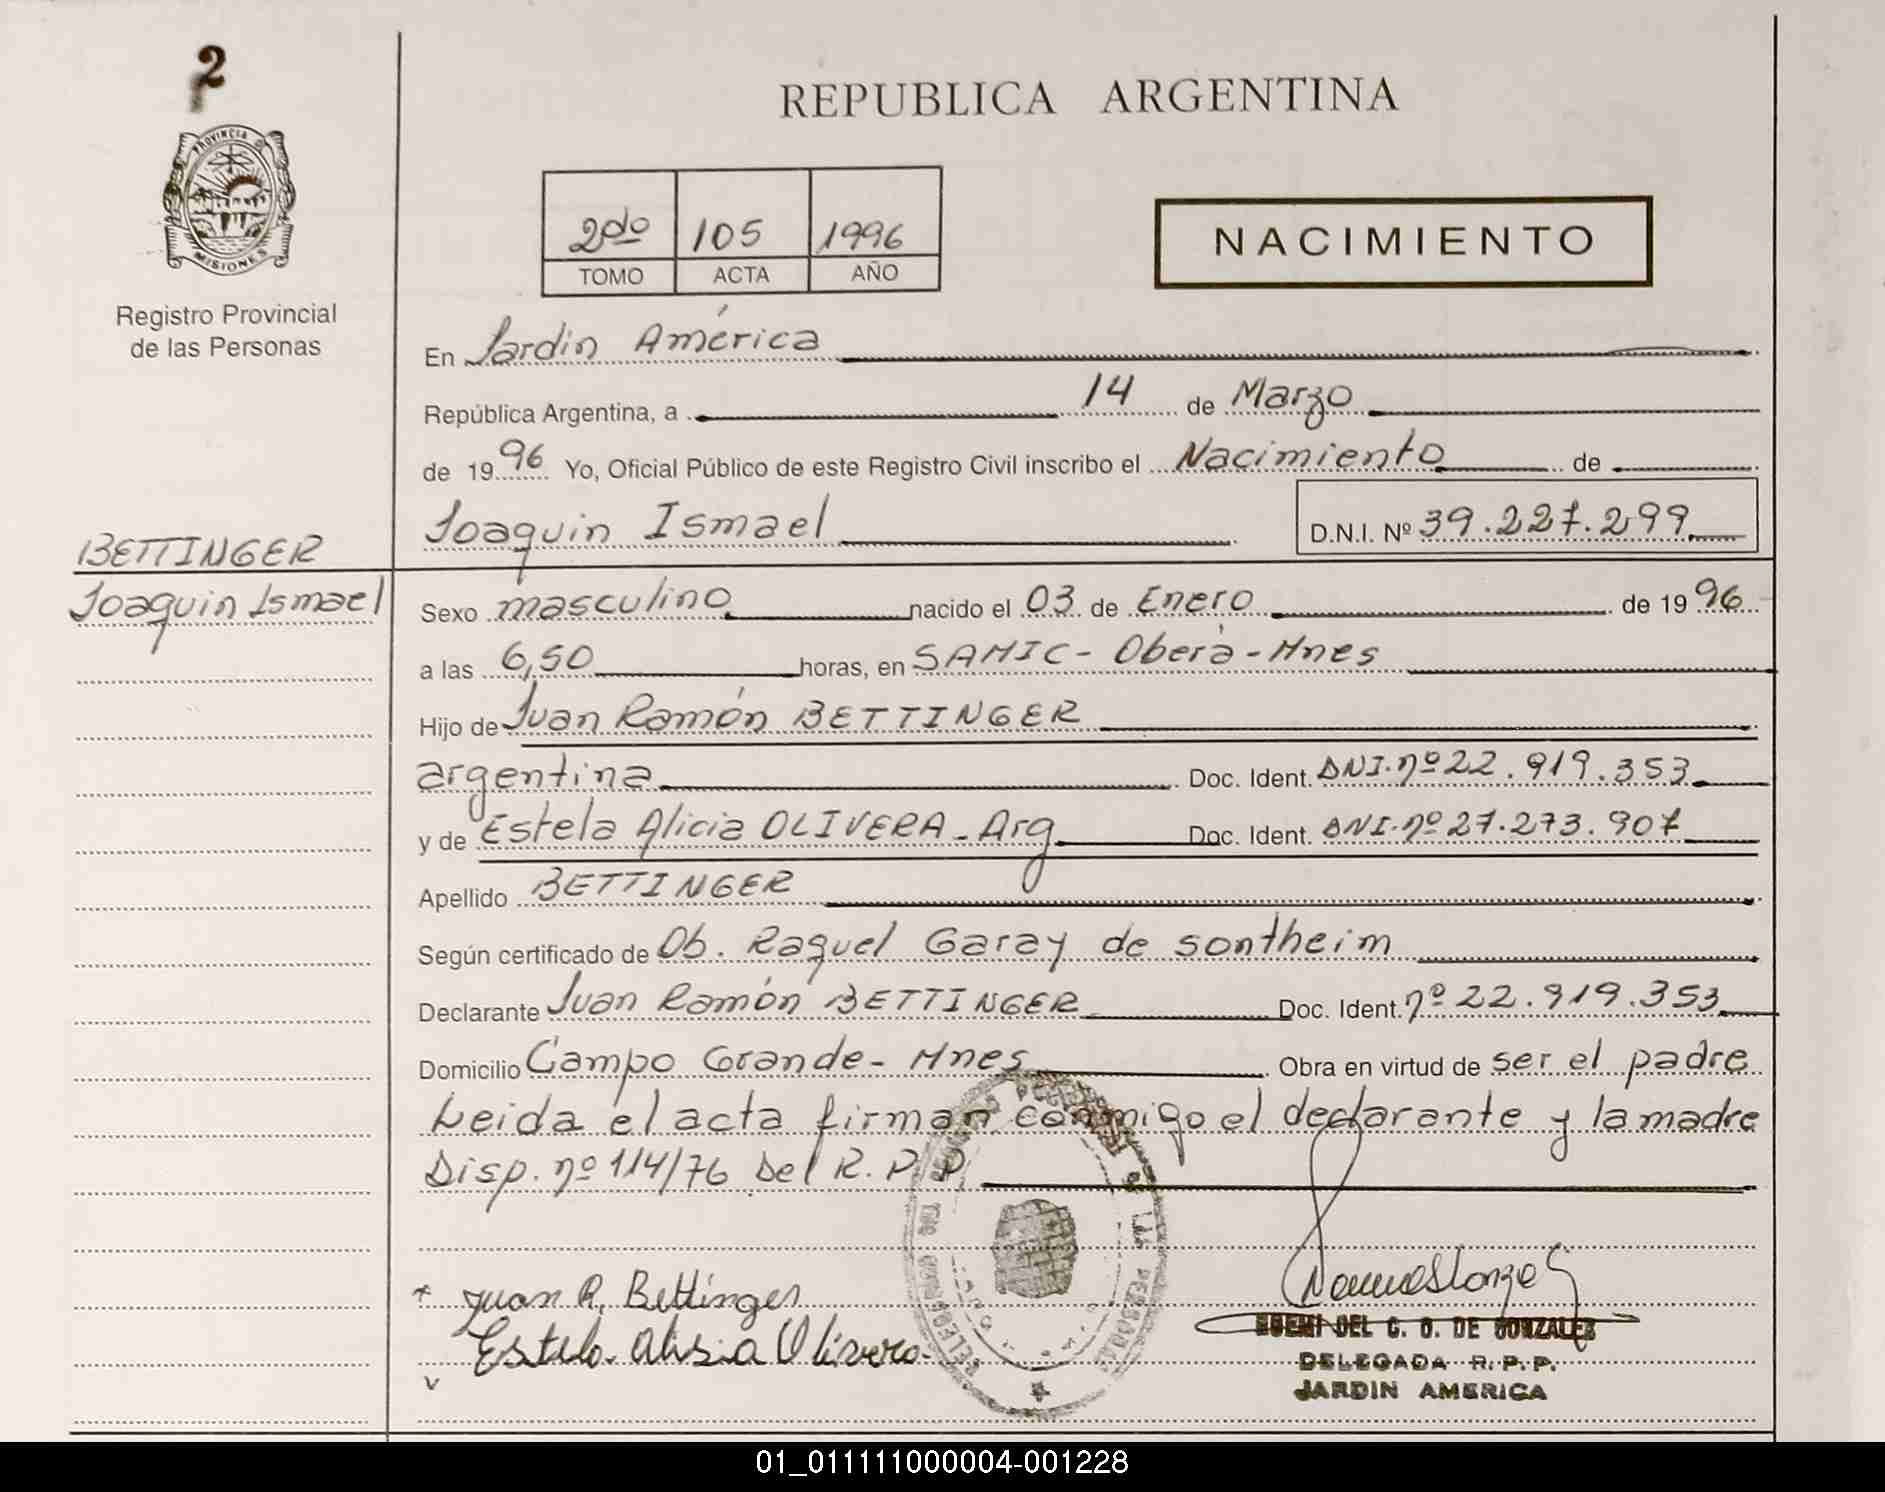 2
PROVINCIA D
MISIONES
Registro Provincial
de las Personas
BETTINGER
Joaquin Ismael
REPUBLICA ARGENTINA
2do 105 1996
TOMO ACTA AÑO
NACIMIENTO
En Jardin América
República Argentina, a 14 de Marzo
de 1996 Yo, Oficial Público de este Registro Civil inscribo el Nacimiento de
Joaquin Ismael D.N.I. Nº 39.227.299
Sexo masculino nacido el 03 de Enero de 1996
a las 6,50 horas, en SAMIC - Oberá - Mnes
Hijo de Juan Ramón BETTINGER
argentina Doc. Ident. DNI. nº 22.919.353
y de Estela Alicia OLIVERA - Arg Doc. Ident. DNI. nº 27.273.907
Apellido BETTINGER
Según certificado de Ob. Raquel Garay de sontheim
Declarante Juan Ramón BETTINGER Doc. Ident. nº 22.919.353
Domicilio Campo Grande - Mnes Obra en virtud de ser el padre
Leida el acta firman conmigo el declarante y la madre
Disp. nº 114/76 Del R. P. P.
Juan R. Bettinger
Estela Alisia Olivera
DEL C. O. DE GONZALEZ
DELEGADA R. P. P.
JARDIN AMERICA
01_011111000004-001228